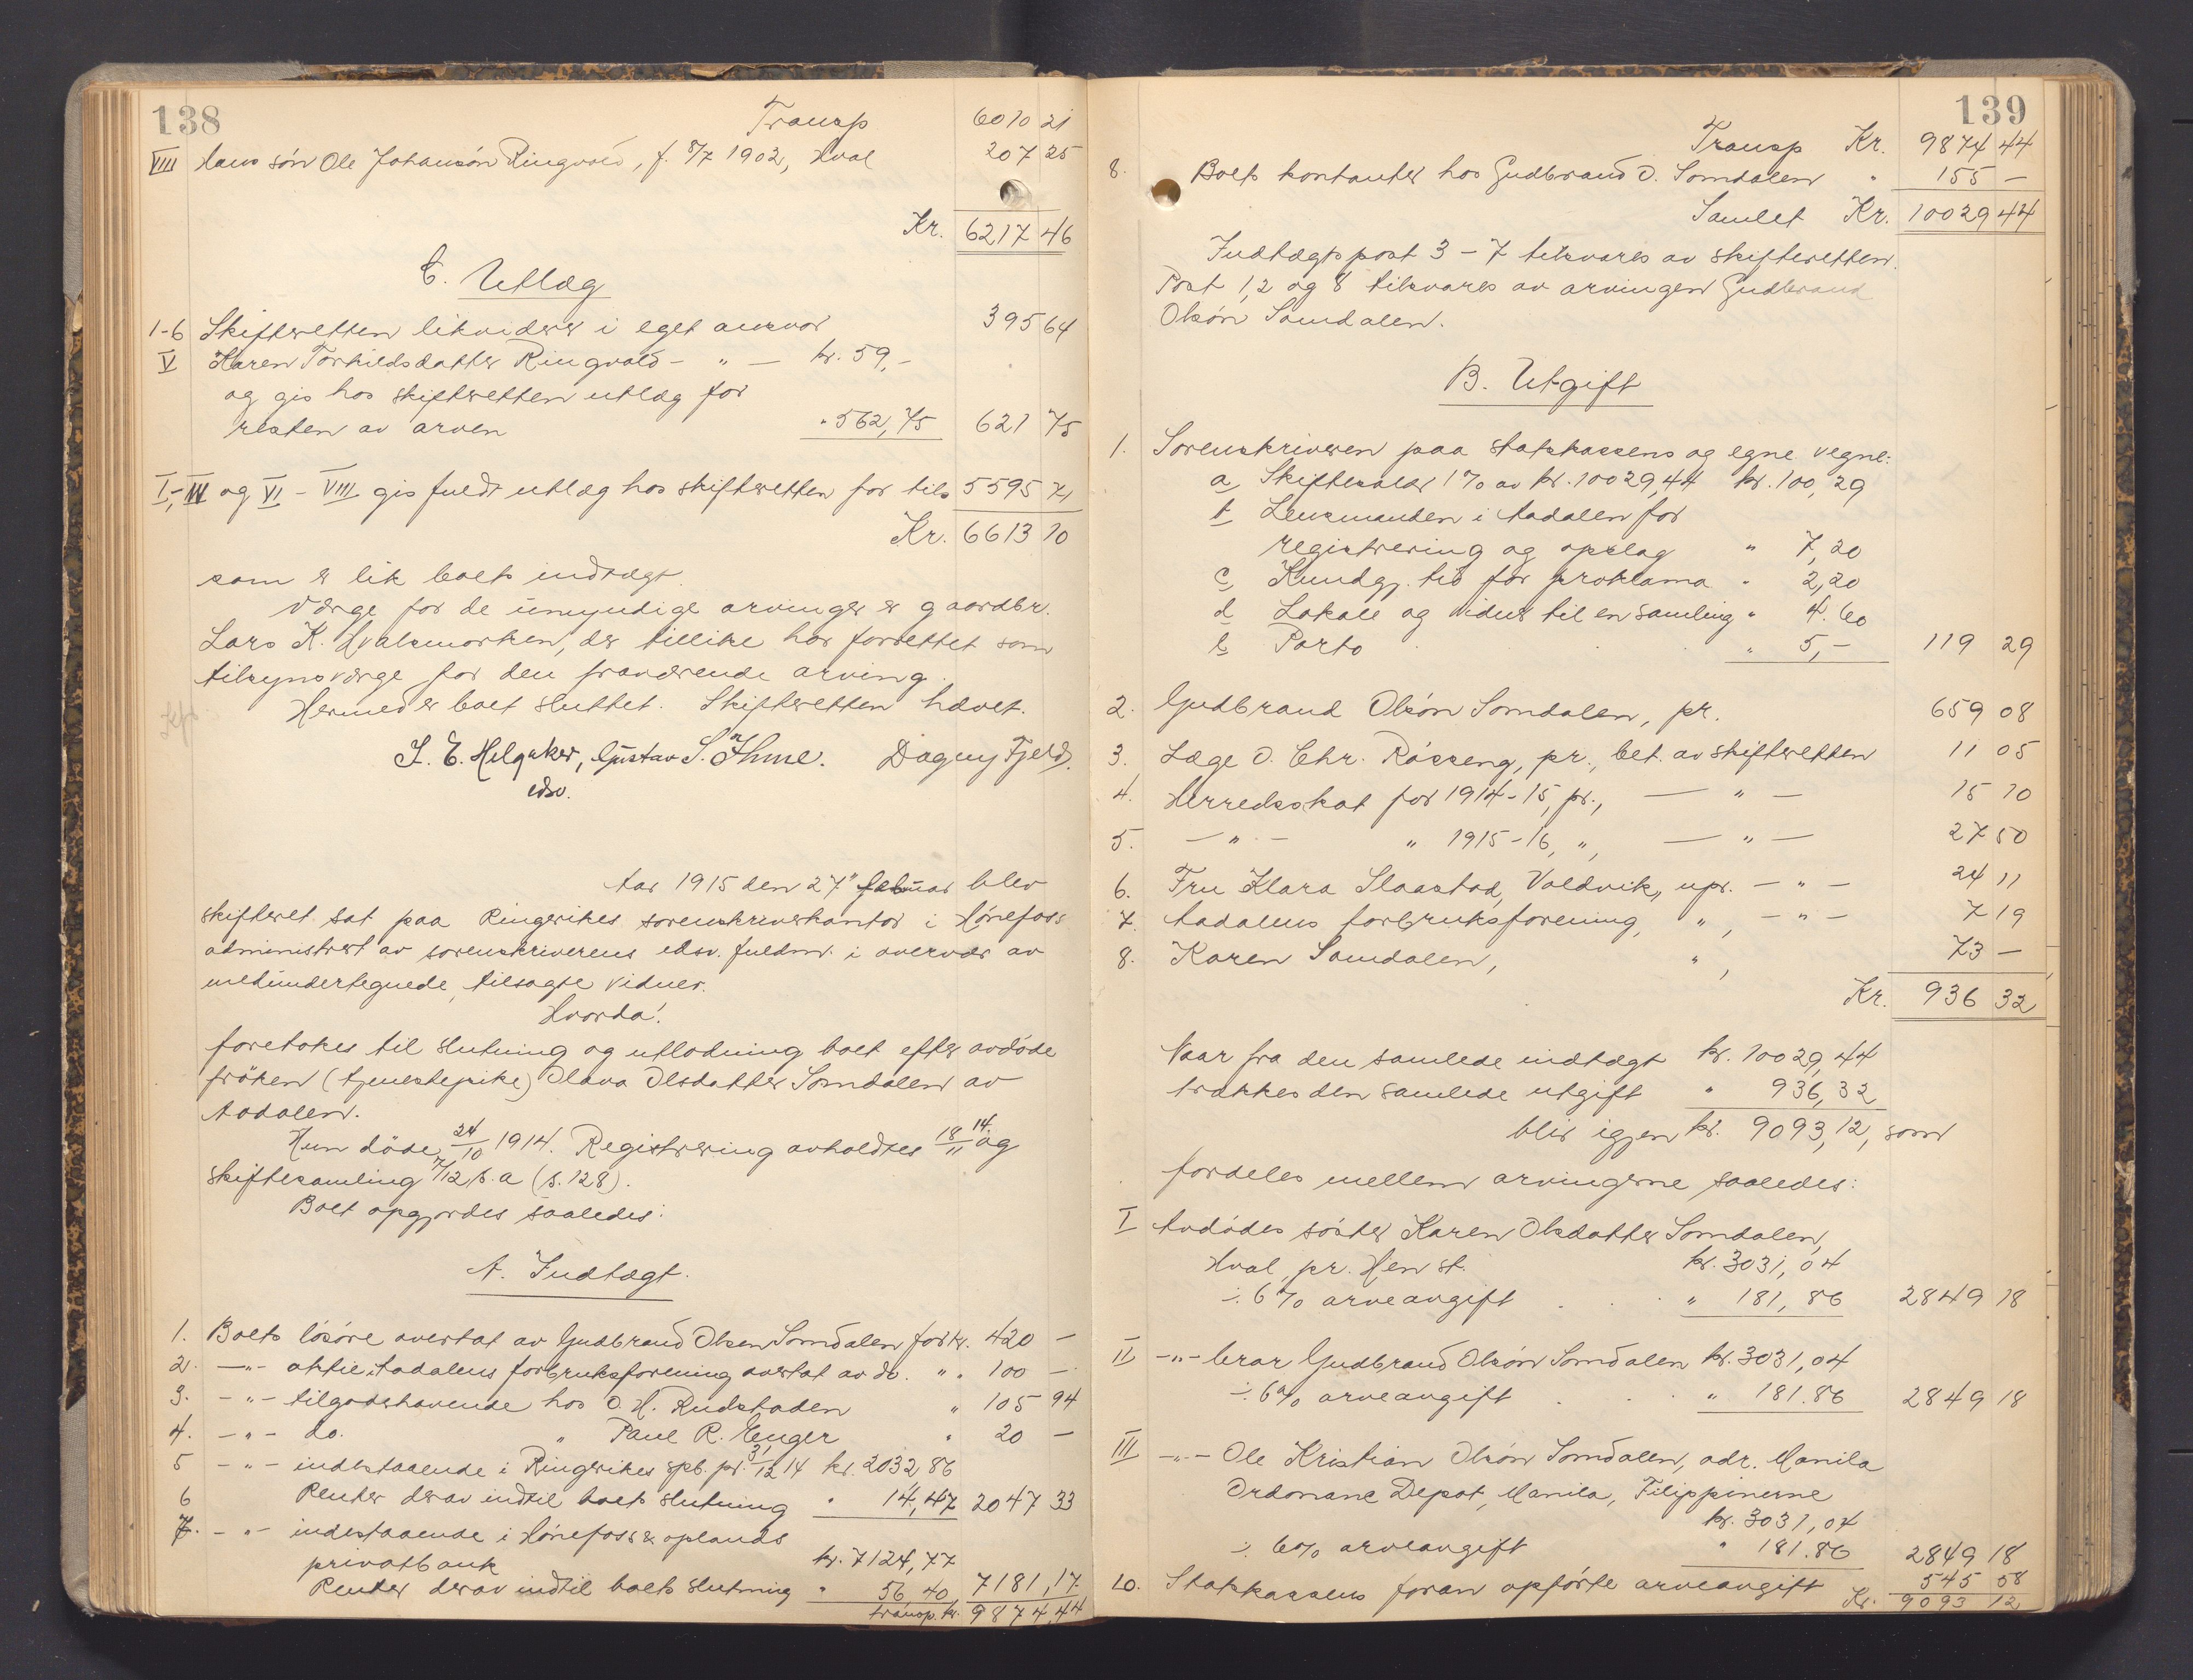 138
Transp 6010 21
VIII Hans søn Ole Johansøn Ringvold, f. 8/7 1902, Hval 207 25
Kr. 6217 46
C. Utlæg
1-6 Skifteretten likviderer i eget ansvar 395 64
V Karen Torkildsdatter Ringvold - " - kr. 59,-
og gis hos skifteretten utlæg for
resten av arven " 562,75 621 75
I,-IV og VI - VIII gis fuldt utlæg hos skifteretten for tils 5595 71
Kr. 6613 10
som er lik boets indtægt.
Værge for de umyndige arvinger er gaardbr.
Lars K. Hvalsmarken, der tillike har forrettet som
tilsynsværge for den fraværende arving.
Hermed er boet sluttet. Skifteretten hævet.
S. E. Helgaker, Gustav S. Ihme. Dagny Fjeld.
edsv.
Aar 1915 den 27" februar blev
skifteret sat paa Ringerikes sorenskriverkontor i Hönefoss
administrert av sorenskriverens edsv. fuldm. i overvær av
medundertegnede, tilsagte vidner.
Hvorda:
foretokes til slutning og utlodning boet efter avdöde
fröken (tjenestepike) Olava Olsdatter Somdalen av
Aadalen.
Hun döde 24/10 1914. Registrering avholdtes 18/11 14 og
skiftesamling 7/12 s. a (s. 128).
Boet opgjordes saaledes:
A. Indtægt.
1. Boets lösöre overtat av Gudbrand Olsen Somdalen for kr. 420 -
2. - " - aktie i Aadalens forbruksforening overtat av do. " " 100 -
3. - " - tilgodehavende hos O. H. Rudstaden " 105 94
4. - " - do. " Paul R. Enger " 20 -
5 - " - indestaaende i Ringerikes spb. pr. 31/12 14 kr. 2032,86
6 Renter derav indtil boets slutning " 14,47 2047 33
7. - " - indestaaende i Hönefoss & oplands
privatbank kr. 7124,77
Renter derav indtil boets slutning " 56,40 7181,17
transp. kr. 9874,44
139
Transp Kr. 9874 44
8. Boets kontanter hos Gudbrand O. Somdalen " 155 -
Samlet Kr. 10029 44
Indtægtspost 3 - 7 tilsvares av skifteretten.
Post 1, 2 og 8 tilsvares av arvingen Gudbrand
Olsön Somdalen.
B. Utgift
1. Sorenskriveren paa statskassens og egne vegne:
a, Skiftesalær 1 % av kr. 10029,44 kr. 100,29
b Lensmanden i Aadalen for
registrering og opslag " 7,20
c, Kundgj. tid for proklama " 2,20
d Lokale og vidner til en samling " 4.60
e Porto " 5,- 119 29
2. Gudbrand Olsön Somdalen, pr. 659 08
3. Læge O. Chr. Rösseng, pr., bet. av skifteretten 11 05
4. Herredsskat for 1914-15, pr., - " - 15 10
5. - " - " 1915-16, ", - " - 27 50
6. Fru Klara Slaastad, Voldvik, upr. - " - 24 11
7. Aadalens forbruksforening, ", - " - 7 19
8. Karen Somdalen, ", 73 -
Kr. 936 32
Naar fra den samlede indtægt kr. 10029,44
trækkes den samlede utgift " 936,32
blir igjen kr. 9093,12, som
fordeles mellem arvingerne saaledes:
I Avdödes söster Karen Olsdatter Somdalen,
Hval, pr. Hen st. kr. 3031,04
÷ 6 % arveavgift " 181,86 2849 18
II - " - bror Gudbrand Olsön Somdalen kr. 3031,04
÷ 6 % arveavgift " 181.86 2849 18
III - " - Ole Kristian Olsön Somdalen, adr. Manila
Ordonanc Depot, Manila, Filippinerne
kr. 3031,04
÷ 6 % arveavgift " 181.86 2849 18
10. Statskassens foran opförte arveavgift 545 58
Kr. 9093 12